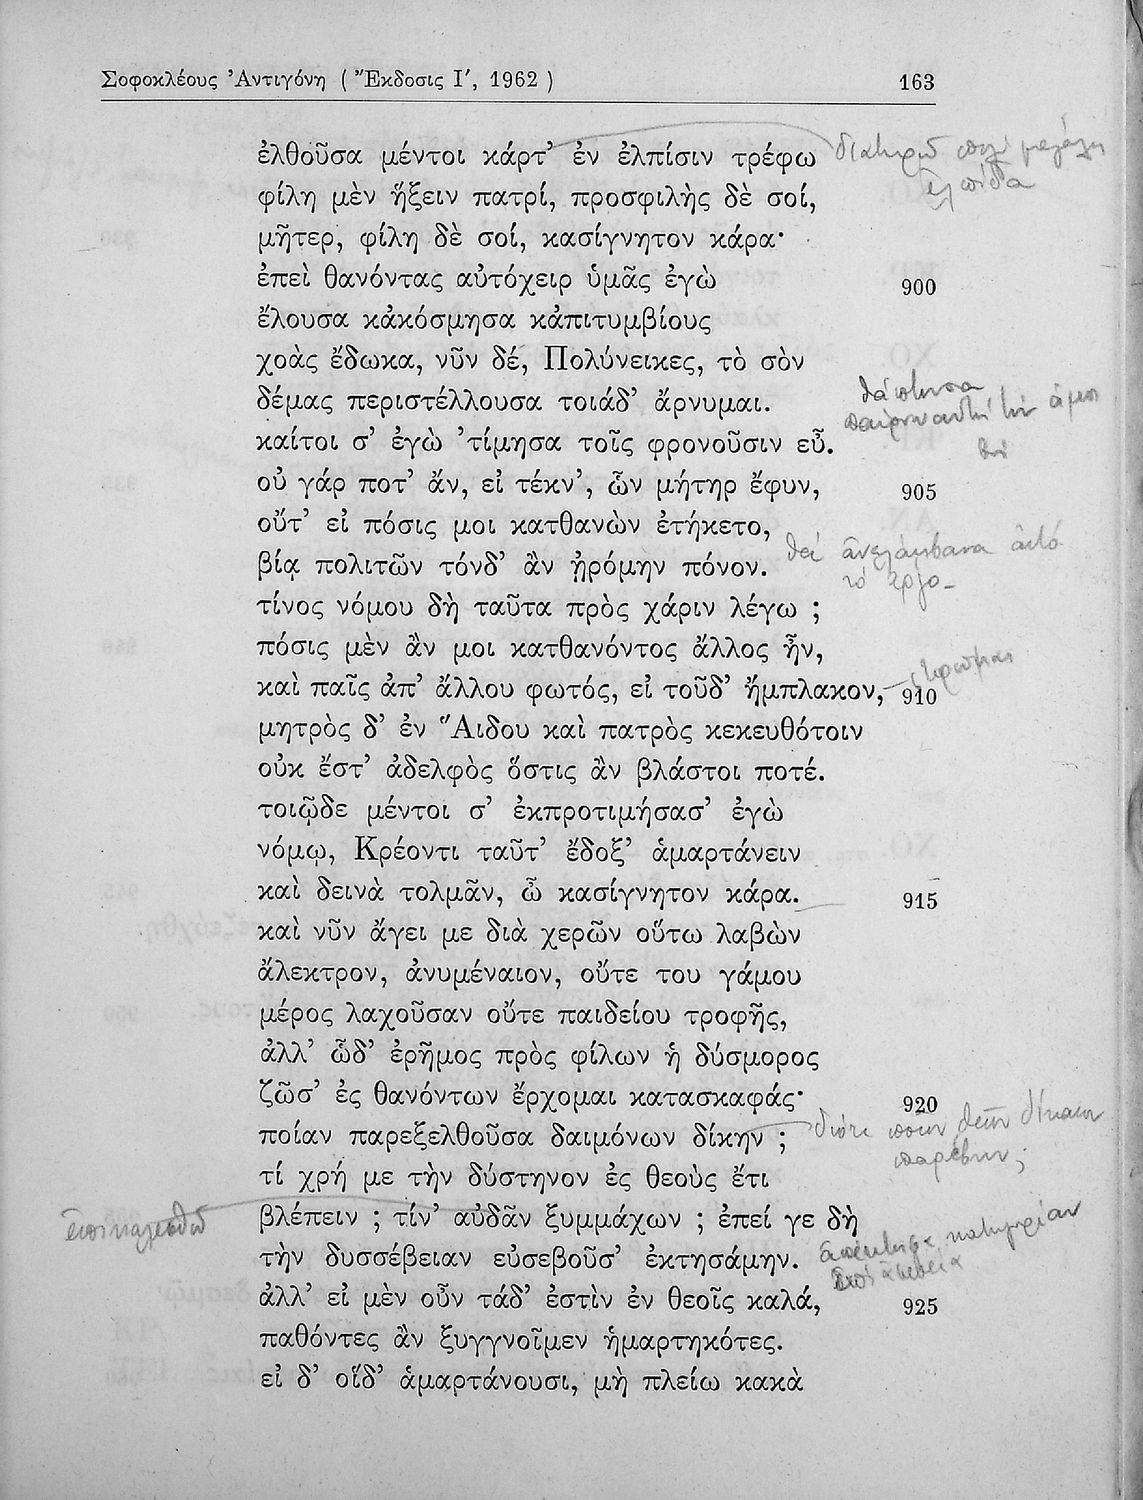 Σοφοκλέους Ἀντιγόνη ( Ἔκδοσις Ι′, 1962 ) 163
ἐλθοῦσα μέντοι κάρτ’ ἐν ἐλπίσιν τρέφω διατηρῶ πολύ μεγάλη
ἐλπίδα
φίλη μὲν ἥξειν πατρί, προσφιλὴς δὲ σοί,
μῆτερ, φίλη δὲ σοί, κασίγνητον κάρα·
ἐπεὶ θανόντας αὐτόχειρ ὑμᾶς ἐγὼ 900
ἔλουσα κἀκόσμησα κἀπιτυμβίους
χοὰς ἔδωκα, νῦν δέ, Πολύνεικες, τὸ σὸν
δέμας περιστέλλουσα τοιάδ’ ἄρνυμαι.
παίρνω αὐτή τήν
καίτοι σ’ ἐγὼ ’τίμησα τοῖς φρονοῦσιν εὖ.
οὐ γάρ ποτ’ ἄν, εἰ τέκν’, ὧν μήτηρ ἔφυν, 905
οὔτ’ εἰ πόσις μοι κατθανὼν ἐτήκετο,
βίᾳ πολιτῶν τόνδ’ ἂν ᾐρόμην πόνον. θά ἀνελάμβανα αὐτό
τό ἔργο
τίνος νόμου δὴ ταῦτα πρὸς χάριν λέγω ;
πόσις μὲν ἄν μοι κατθανόντος ἄλλος ἦν,
καὶ παῖς ἀπ’ ἄλλου φωτός, εἰ τοῦδ’ ἤμπλακον, 910
μητρὸς δ’ ἐν Ἅιδου καὶ πατρὸς κεκευθότοιν
οὐκ ἔστ’ ἀδελφὸς ὅστις ἂν βλάστοι ποτέ.
τοιῷδε μέντοι σ’ ἐκπροτιμήσασ’ ἐγὼ
νόμῳ, Κρέοντι ταῦτ’ ἔδοξ’ ἁμαρτάνειν
καὶ δεινὰ τολμᾶν, ὦ κασίγνητον κάρα. 915
καὶ νῦν ἄγει με διὰ χερῶν οὕτω λαβὼν
ἄλεκτρον, ἀνυμέναιον, οὔτε του γάμου
μέρος λαχοῦσαν οὔτε παιδείου τροφῆς,
ἀλλ’ ὧδ’ ἐρῆμος πρὸς φίλων ἡ δύσμορος
ζῶσ’ ἐς θανόντων ἔρχομαι κατασκαφάς· 920
ποίαν παρεξελθοῦσα δαιμόνων δίκην ; διότι ποῖον θεῖον δίκαιον
παρέβην ;
τί χρή με τὴν δύστηνον ἐς θεοὺς ἔτι
ἐπικαλεσθῶ βλέπειν ; τίν’ αὐδᾶν ξυμμάχων ; ἐπεί γε δὴ
τὴν δυσσέβειαν εὐσεβοῦσ’ ἐκτησάμην. ἀπέκτησα κατηγορίαν
ἀλλ’ εἰ μὲν οὖν τάδ’ ἐστὶν ἐν θεοῖς καλά, 925
παθόντες ἂν ξυγγνοῖμεν ἡμαρτηκότες.
εἰ δ’ οἵδ’ ἁμαρτάνουσι, μὴ πλείω κακὰ